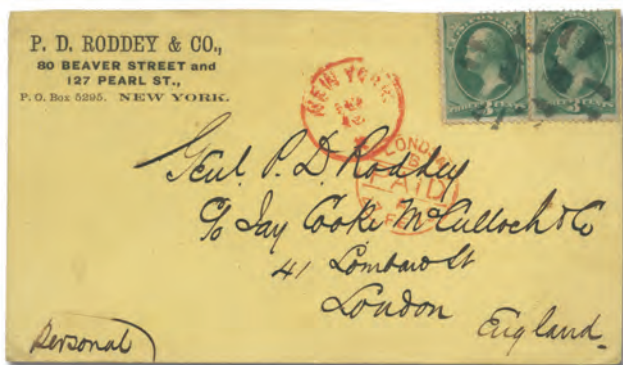 P. D. RODDEY & CO.,
80 BEAVER STREET and
127 PEARL ST.,
P. O. Box 5295. NEW YORK.
NEW YORK
LONDON
PAID
FE
3 CENTS
THREE 3 CENTS
Genl. P. D. Roddey
c/o Jay Cooke McCulloch & Co
41 Lombard St
London
England
Personal